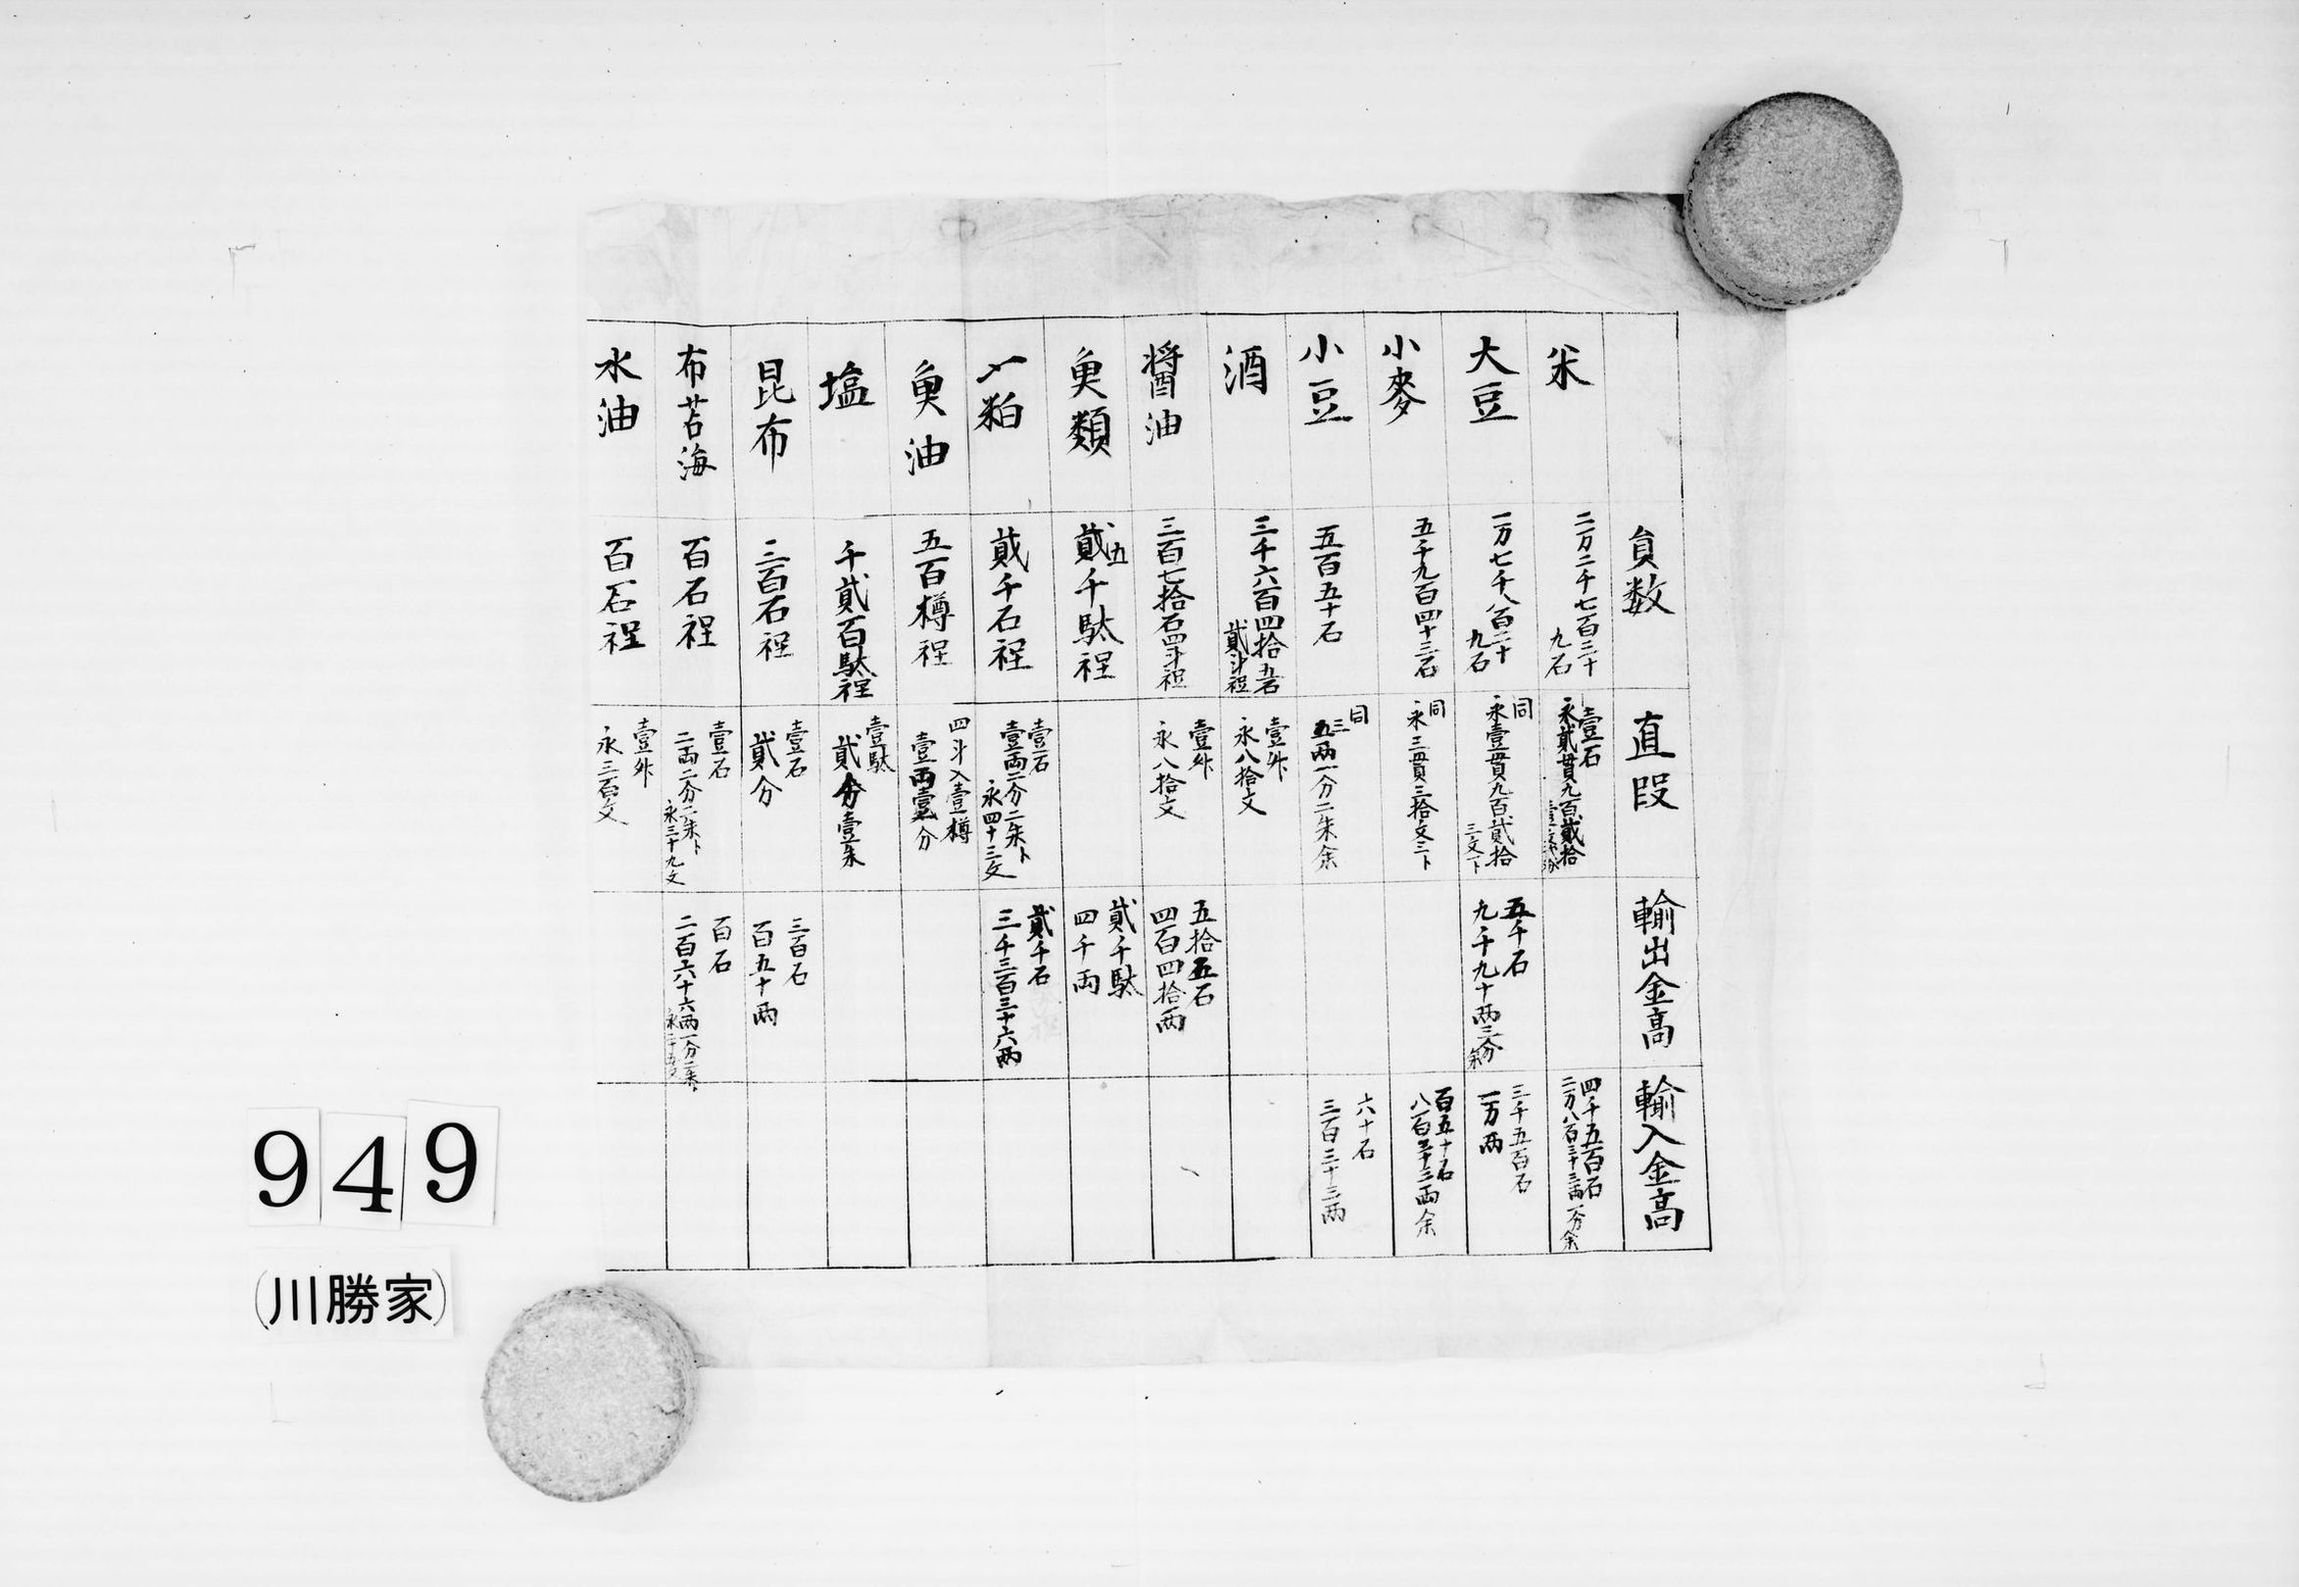 員数
直段
輸出金高
輸入金高
米
二万二千七百三十
九石
壹石
永貳貫九百貳拾
四千五百石
二万八百三十三両一分余
大豆
一万七千八百二十
九石
同
永壹貫九百貳拾
三文下
五千石
九千九十両三分
余
三千五百石
一万両
小麥
五千九百四十三石
同
永三貫三拾文三ト
百五十石
八百三十三両余
小豆
五百五十石
同
三
五両一分二朱余
六十石
三百三十三両
酒
三千六百四拾五石
貳斗程
壹升
永八拾文
醤油
三百七拾石四斗程
壹升
永八拾文
五拾五石
四百四拾両
魚類
五
貳千駄程
貳千駄
四千両
〆粕
貳千石程
壹石
壹両二分二朱ト
永四十三文
貳千石
三千三百三十六両
魚油
五百樽程
四斗入壹樽
壹両壹分
塩
千貳百駄程
壹駄
貳分壹朱
昆布
三百石程
壹石
貳分
三百石
百五十両
布苔海
百石程
壹石
二両二分二朱ト
永三十九文
百石
二百六十六両一分二朱ト
水油
百石程
壹升
永三百文
949
(川勝家)